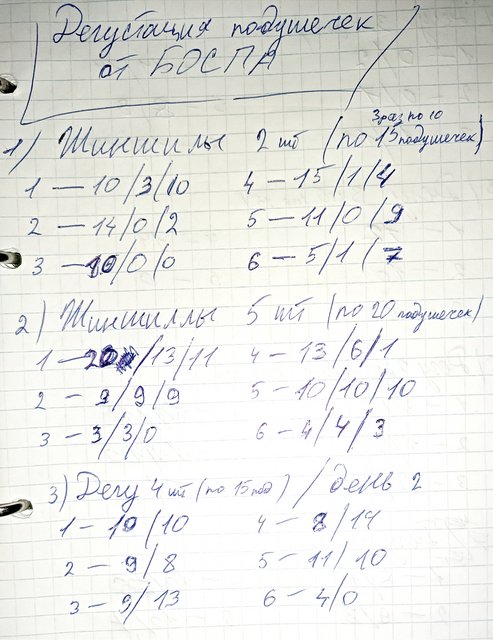 Дегустация подушечек
от БОСПА
3 раз по 10
1) Шиншиллы 2 шт (по 15 подушечек)
1 — 10/3/10 4 — 15/1/4
2 — 14/0/2 5 — 11/0/9
3 — 10/0/0 6 — 5/1/7
2) Шиншиллы 5 шт (по 20 подушечек)
1 — 20/13/11 4 — 13/6/1
2 — 9/9/9 5 — 10/10/10
3 — 3/3/0 6 — 4/4/3
3) Дегу 4 шт (по 15 под) / день 2
1 — 10/10 4 — 8/14
2 — 9/8 5 — 11/10
3 — 9/13 6 — 4/0